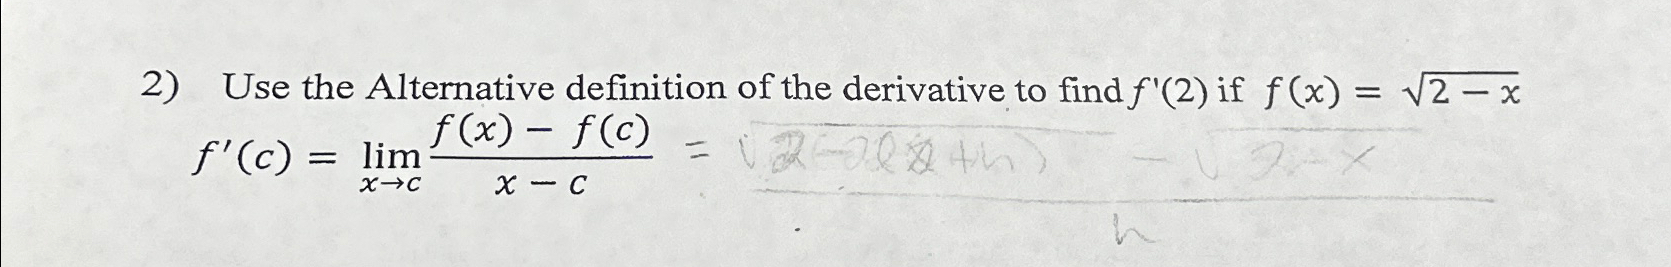 2) Use the Alternative definition of the derivative to find f'(2) if f(x) = √2 − x
f'(c) = lim x→c f(x) − f(c) / x − c = √ − √2 − x / h